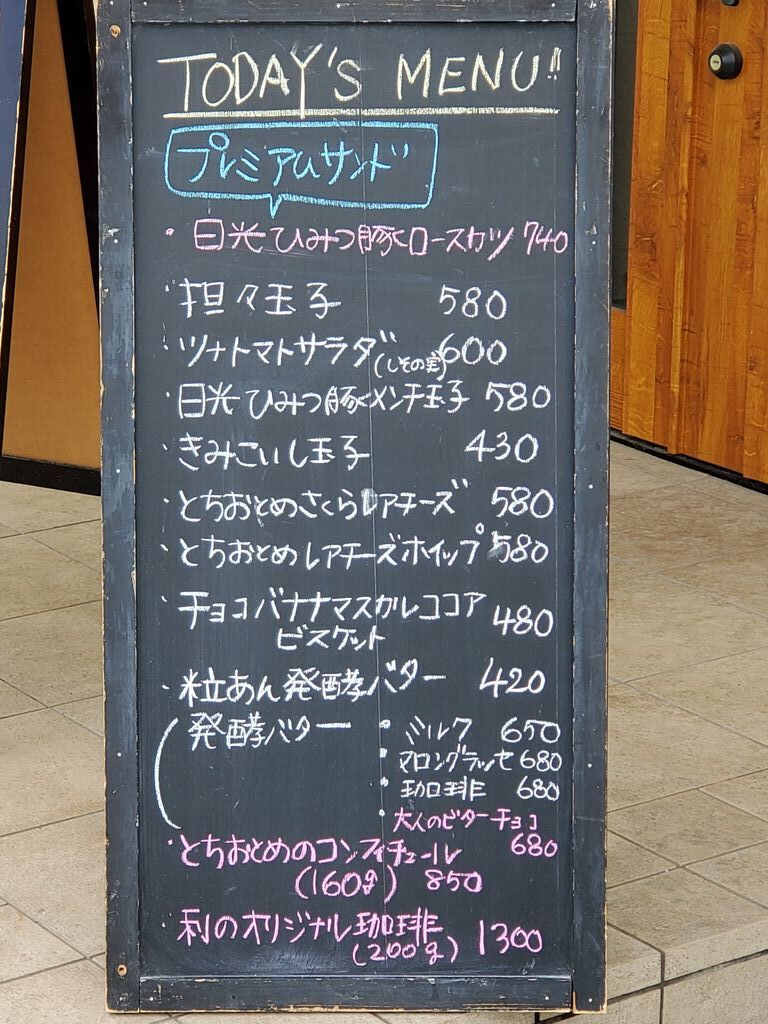 TODAY'S MENU!!
プレミアムサンド
・日光ひみつ豚ロースカツ 740
・担々玉子 580
・ツナトマトサラダ(しその実) 600
・日光ひみつ豚メンチ玉子 580
・きみこいし玉子 430
・とちおとめさくらレアチーズ 580
・とちおとめレアチーズホイップ 580
・チョコバナナマスカルレココア
ビスケット 480
・粒あん発酵バター 420
発酵バター ・ミルク 650
・マロングラッセ 680
・珈琲 680
・大人のビターチョコ
680
・とちおとめのコンフィチュール
(160g) 850
・利のオリジナル珈琲
(200g) 1300